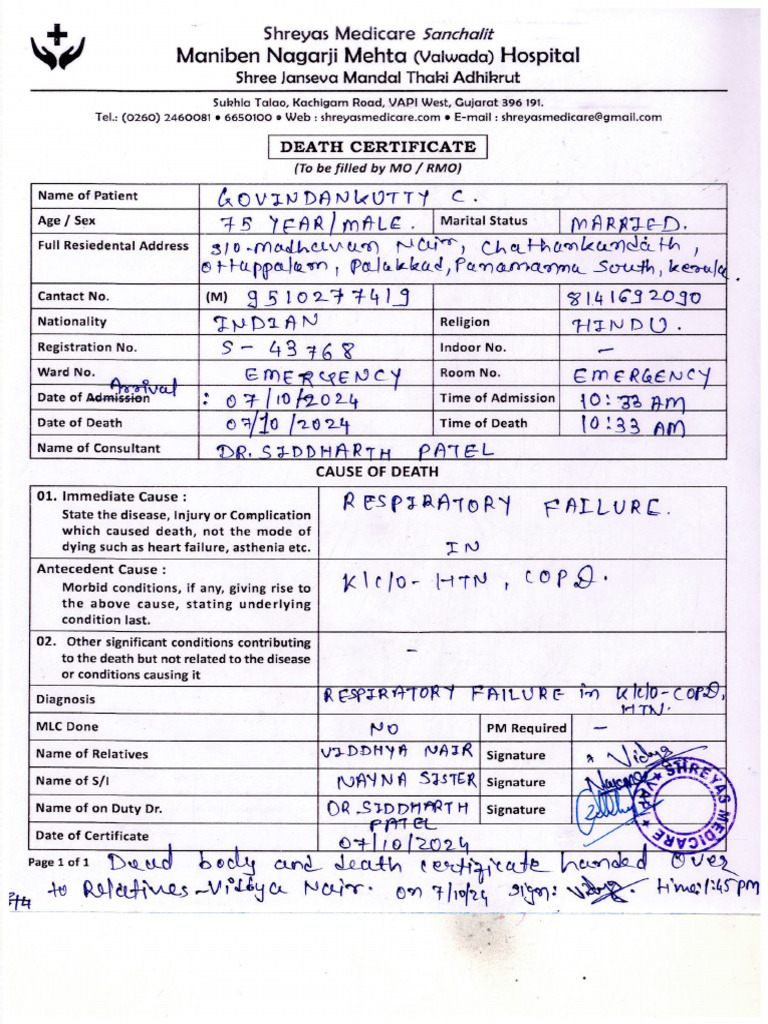 Shreyas Medicare Sanchalit
Maniben Nagarji Mehta (Valwada) Hospital
Shree Janseva Mandal Thaki Adhikrut
Sukhla Talao, Kachigam Road, VAPI West, Gujarat 396 191.
Tel.: (0260) 2460081 • 6650100 • Web : shreyasmedicare.com • E-mail : shreyasmedicare@gmail.com
DEATH CERTIFICATE
(To be filled by MO / RMO)
Name of Patient GOVINDANKUTTY C.
Age / Sex 75 YEAR/MALE. Marital Status MARRIED.
Full Resiedental Address S/O-Madhavan Nair, Chathankandath,
Ottappalam, Palakkad, Panamanna South, Kerala.
Cantact No. (M) 9510277419 8141692090
Nationality INDIAN Religion HINDU.
Registration No. S-43768 Indoor No. -
Ward No. EMERGENCY Room No. EMERGENCY
Date of Admission Arrival : 07/10/2024 Time of Admission 10:33 AM
Date of Death 07/10/2024 Time of Death 10:33 AM
Name of Consultant DR. SIDDHARTH PATEL
CAUSE OF DEATH
01. Immediate Cause : RESPIRATORY FAILURE.
State the disease, Injury or Complication
which caused death, not the mode of
dying such as heart failure, asthenia etc. IN
Antecedent Cause : K/C/O-HTN, COPD.
Morbid conditions, if any, giving rise to
the above cause, stating underlying
condition last.
02. Other significant conditions contributing
to the death but not related to the disease -
or conditions causing it
Diagnosis RESPIRATORY FAILURE in K/C/O-COPD,
HTN.
MLC Done NO PM Required -
Name of Relatives VIDDHYA NAIR Signature Vidya
Name of S/I NAYNA SISTER Signature
Name of on Duty Dr. DR SIDDHARTH PATEL Signature
SHREYAS MEDICARE ★ VAPI ★
Date of Certificate 07/10/2024
Page 1 of 1 Dead body and death certificate handed over
to Relatives-Vidya Nair. on 7/10/24 sign: Vidya. time:1:45pm